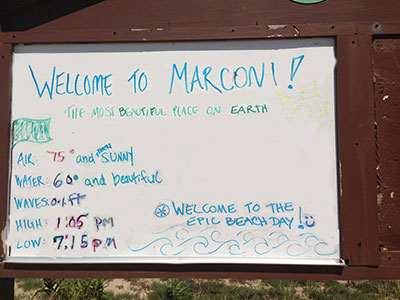 WELCOME TO MARCONI!
THE MOST BEAUTIFUL PLACE ON EARTH
AIR: 75° and SUNNY
WATER: 60° and beautiful
WAVES: 0-1 ft
HIGH: 1:05 pm
LOW: 7:15 pm
WELCOME TO THE
EPIC BEACH DAY!